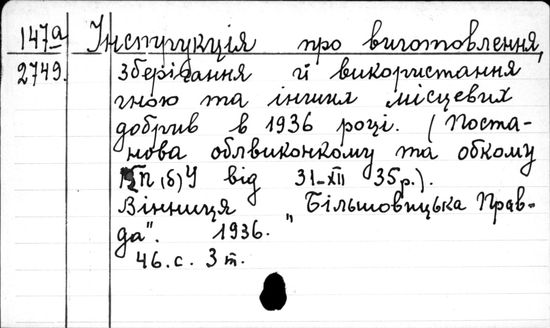 147а Інструкція про виготовлення,
2749. зберігання й використання
гною та інших місцевих
добрив в 1936 році. (Поста-
нова облвиконкому та обкому
КП(б)У від 31-XII 35р.).
Вінниця „Більшовицька Прав-
да". 1936.
46.с. 3 т.